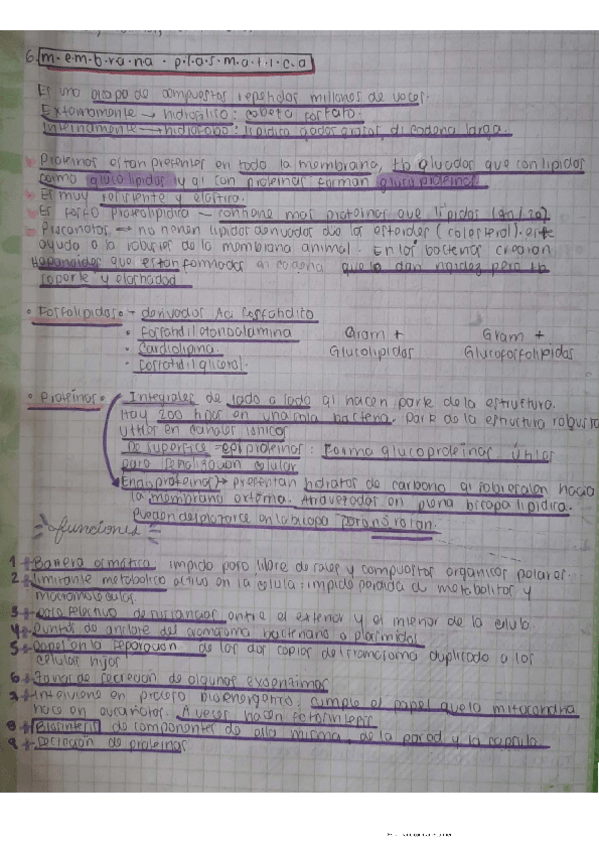 6. m·e·m·b·r·a·n·a · p·l·a·s·m·a·t·i·c·a
Es una bicapa de compuestos repetidos millones de veces.
Externamente → hidrofilico: cabeza fosfato.
Internamente → hidrofobo: lipidica acidos grasos, di cadena larga
Proteinas estan presentes en toda la membrana, tb glucidos que con lipidos
como glucolipidos y al con proteinas forman glucoproteinas
Es muy resistente y elastica.
Es fosfo proteolipidica – contiene mas proteinas que lipidos
Procariotas → no tienen lipidos derivados de los esteroles (colesterol). este
ayuda a la de la membrana animal. En las bacterias crearon
Hopanoides que estan formados que le dan rigidez pero tb
soporte y elasticidad
• Fosfolipidos → derivados Aci fosfatidico
• Fosfatidiletanolamina
• Cardiolipina
• Fosfatidilglicerol.
Gram +
Glucolipidos
Gram +
Glucofosfolipidos
• Proteinas • Integrales de lado a lado al hacen parte de la estructura.
Hay 200 tipos en una sola bacteria. parte de la estructura robusta
utiles en canales ionicos
De superficie = : Forma glucoproteinas unicas
para senalizacion celular
Endoproteinas → presentan hidratos de carbono al sobresalen hacia
la membrana externa. Atravesadas en plena bicapa lipidica.
Pueden desplazarse en la bicapa pero no rotan.
funciones
1 → Barrera osmotica impide paso libre de sales y compuestos organicos polares.
2 → limitante metabolico activo en la celula: impide perdida de metabolitos y
macromoleculas.
3 → paso selectivo de sustancias entre el exterior y el interior de la celula.
4 → puntos de anclaje del cromosoma bacteriano o plasmidos
5 → papel en la separacion de las dos copias del cromosoma duplicado a las
celulas hijas
6 → zonas de secrecion de algunos exoenzimas
7 → Interviene en proceso bioenergetico: cumple el papel que la mitocondria
hace en eucariotas. A veces hacen fotosintesis.
8 → Biosintesis de componentes de ella misma, de la pared y la capsula.
9 → Secrecion de proteinas